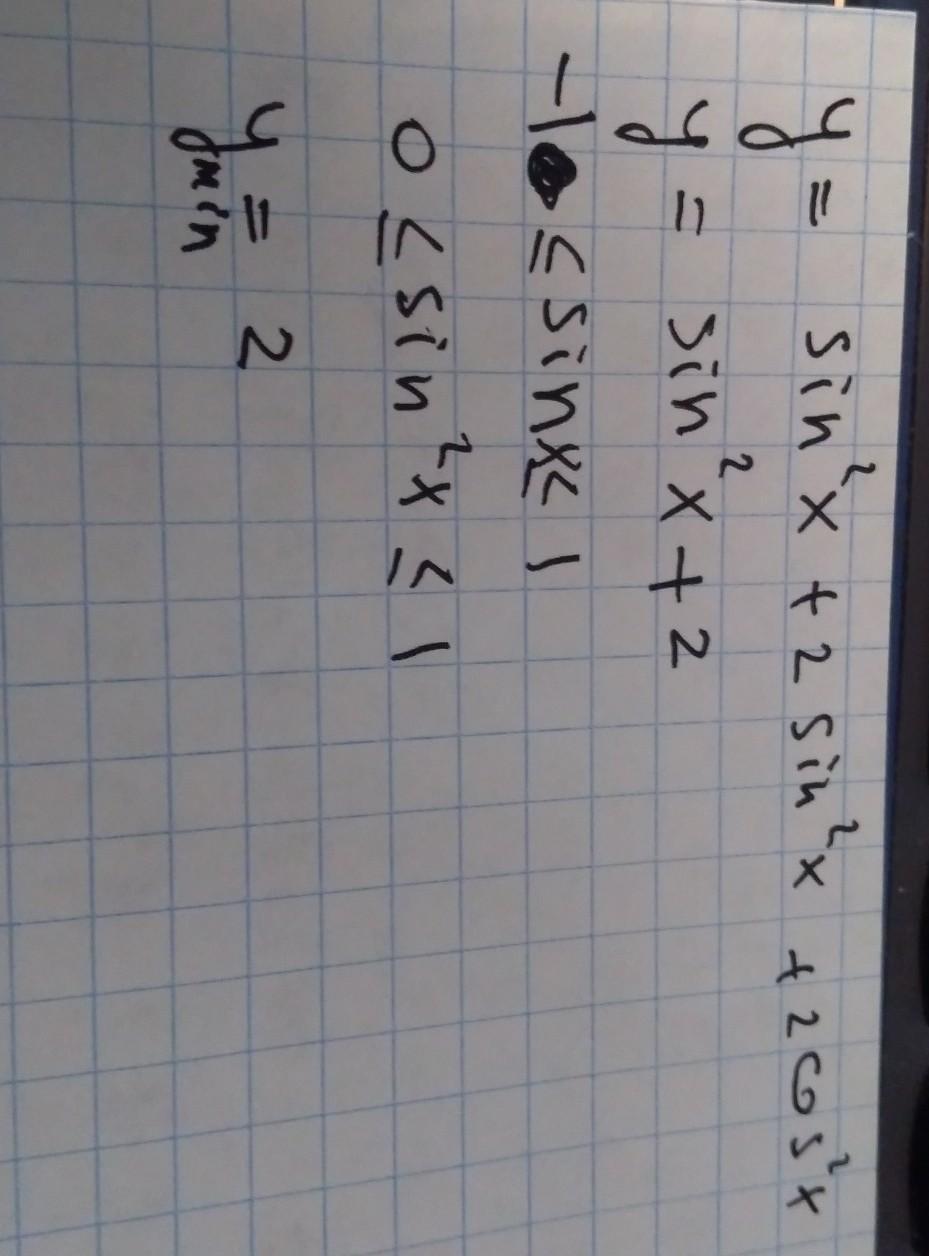 y = sin²x + 2 sin²x + 2cos²x
y = sin²x + 2
-1 ≤ sinx ≤ 1
0 ≤ sin²x ≤ 1
y_min = 2